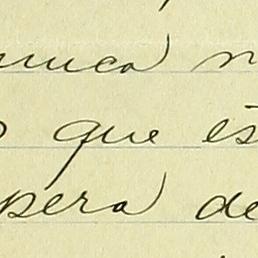 nunca n
o que es
pera de